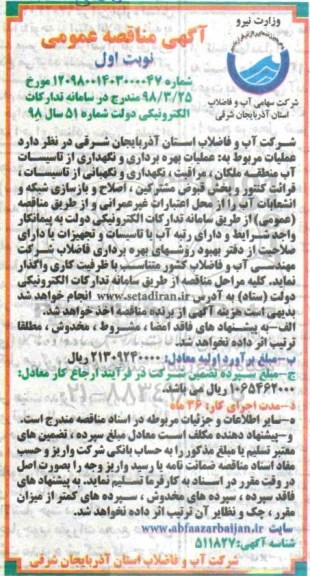 وزارت نیرو
شرکت سهامی آب و فاضلاب
استان آذربایجان شرقی
آگهی مناقصه عمومی
نوبت اول
شماره ۱۲۰۹۸۰۰۱۴۰۳۰۰۰۰۴۷ مورخ
۹۸/۳/۲۵ مندرج در سامانه تدارکات
الکترونیکی دولت شماره ۵۱ سال ۹۸
شرکت آب و فاضلاب استان آذربایجان شرقی در نظر دارد
عملیات مربوط به: عملیات بهره برداری و نگهداری از تاسیسات
آب منطقه ملکان ، مراقبت ، نگهداری و نگهبانی از تاسیسات ،
قرائت کنتور و پخش قبوض مشترکین ، اصلاح و بازسازی شبکه و
انشعابات آب را از محل اعتبارات غیرعمرانی و از طریق مناقصه
(عمومی) از طریق سامانه تدارکات الکترونیکی دولت به پیمانکار
واجد شرایط و دارای رتبه آب یا تاسیسات و تجهیزات یا دارای
صلاحیت از دفتر بهبود روشهای بهره برداری فاضلاب شرکت
مهندسی آب و فاضلاب کشور متناسب با ظرفیت کاری واگذار
نماید. کلیه مراحل مناقصه از طریق سامانه تدارکات الکترونیکی
دولت (ستاد) به آدرس www.setadiran.ir انجام خواهد شد
بدیهی است هزینه آگهی از برنده مناقصه اخذ خواهد شد.
الف-به پیشنهاد های فاقد امضا ، مشروط ، مخدوش ، مطلقا
ترتیب اثر داده نخواهد شد.
ب-مبلغ برآورد اولیه معادل: ۲۱۳۰۹۲۴۰۰۰۰ ریال
ج-مبلغ سپرده تضمین شرکت در فرآیند ارجاع کار معادل:
۱۰۶۵۴۶۲۰۰۰ ریال می باشد.
د-مدت اجرای کار: ۳۶ ماه
ه-سایر اطلاعات و جزئیات مربوطه در اسناد مناقصه مندرج است.
و-پیشنهاد دهنده مکلف است معادل مبلغ سپرده ، تضمین های
معتبر تسلیم یا مبلغ مذکور را به حساب بانکی شرکت واریز و حسب
مفاد اسناد مناقصه ضمانت نامه یا رسید واریز وجه را بصورت اصل
در وقت مقرر در اسناد به کارفرما تسلیم نماید. به پیشنهاد های
فاقد سپرده ، سپرده های مخدوش ، سپرده های کمتر از میزان
مقرر ، چک و نظایر آن ترتیب اثر داده نخواهد شد.
سایت www.abfaazarbaijan.ir
شناسه آگهی: ۵۱۱۸۲۷
شرکت آب و فاضلاب استان آذربایجان شرقی